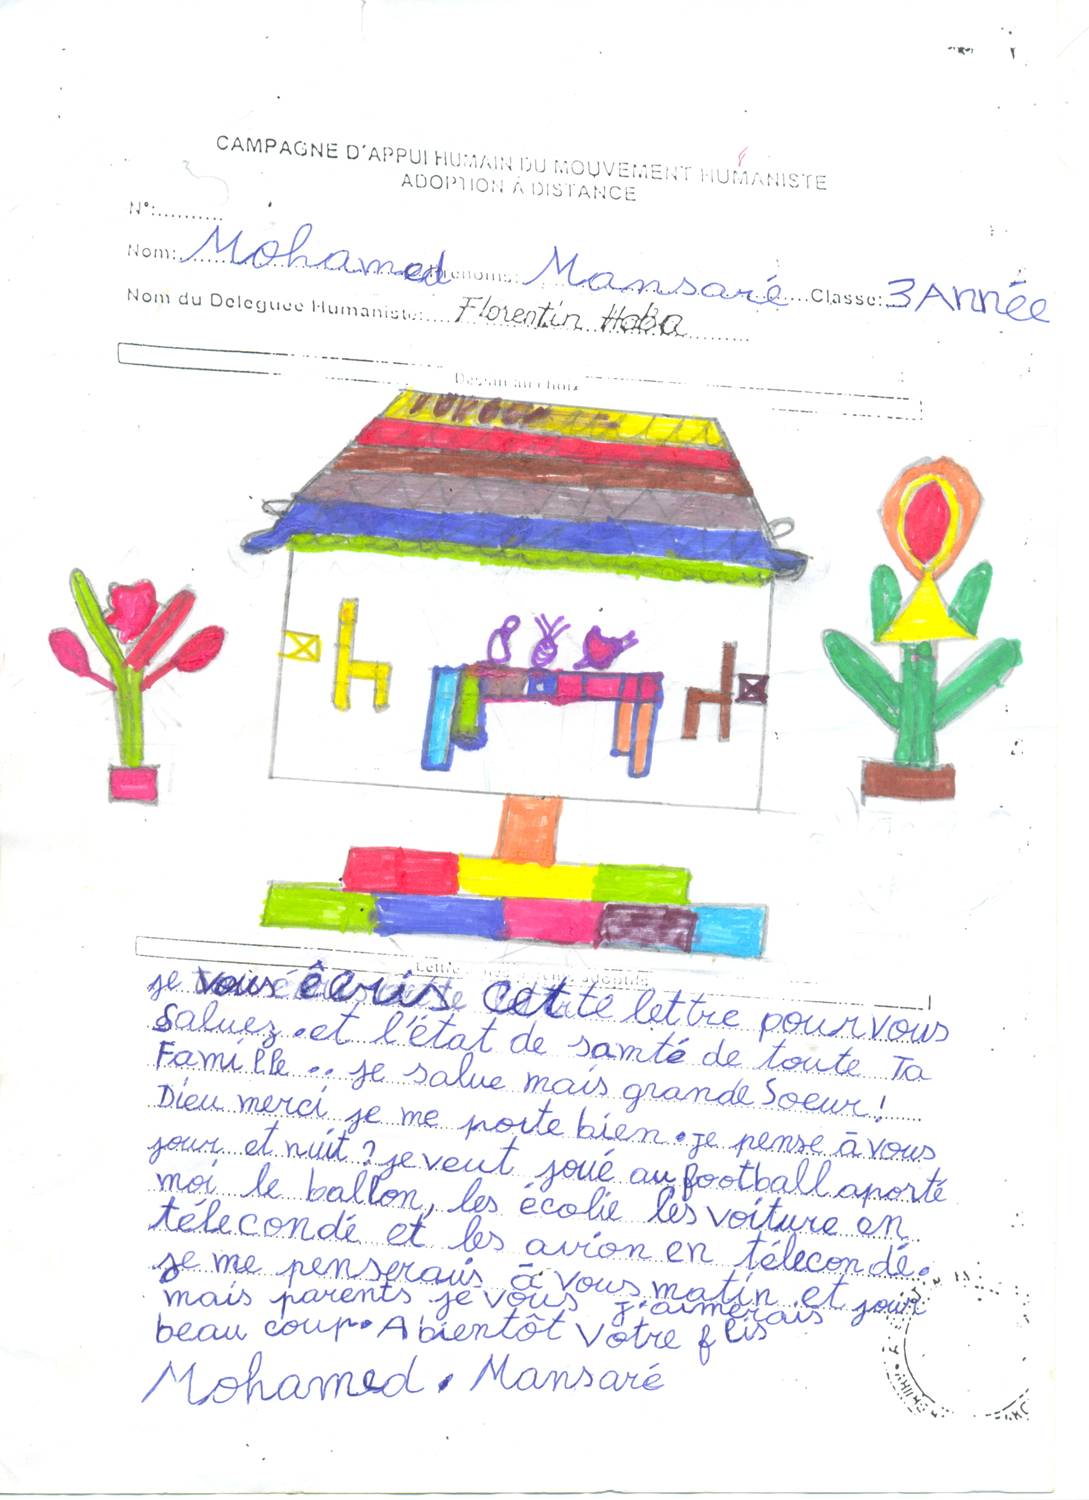 CAMPAGNE D'APPUI HUMAIN DU MOUVEMENT HUMANISTE
ADOPTION A DISTANCE
N°:..........
Nom: Mohamed Prénoms: Mansaré Classe: 3 Année
Nom du Deleguee Humaniste: Florentin Haba
Dessin au choix
Lettre
je vous êcris cette lettre pour vous
Saluez. et l'état de samté de toute Ta
Famille.. je salue mais grande Soeur!
Dieu merci je me porte bien. je pense à vous
jour et nuit? je veut joué au football aporté
moi le ballon, les écolie les voiture en
télecondé et les avion en télecondé.
je me penserais à vous matin et jour
mais parents je vous j'aimerais
beau coup. A bientôt Votre flis
Mohamed. Mansaré